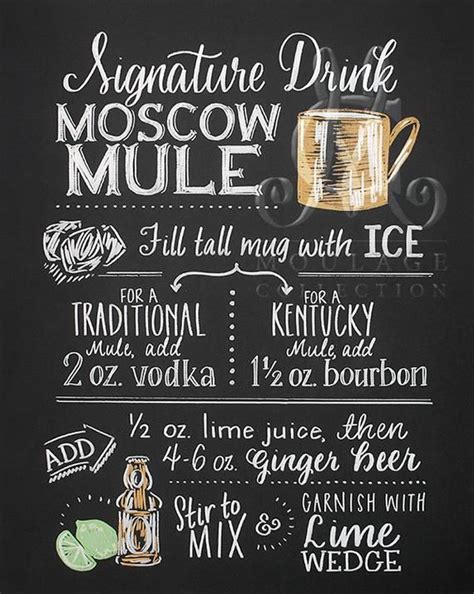 Signature Drink
MOSCOW
MULE
Fill tall mug with ICE
MOULAGE
COLLECTION
FOR A
TRADITIONAL
Mule, add
2 oz. vodka
FOR A
KENTUCKY
Mule, add
1½ oz. bourbon
ADD
½ oz. lime juice, then
4-6 oz. Ginger Beer
Stir to
MIX
&
GARNISH WITH
Lime
WEDGE